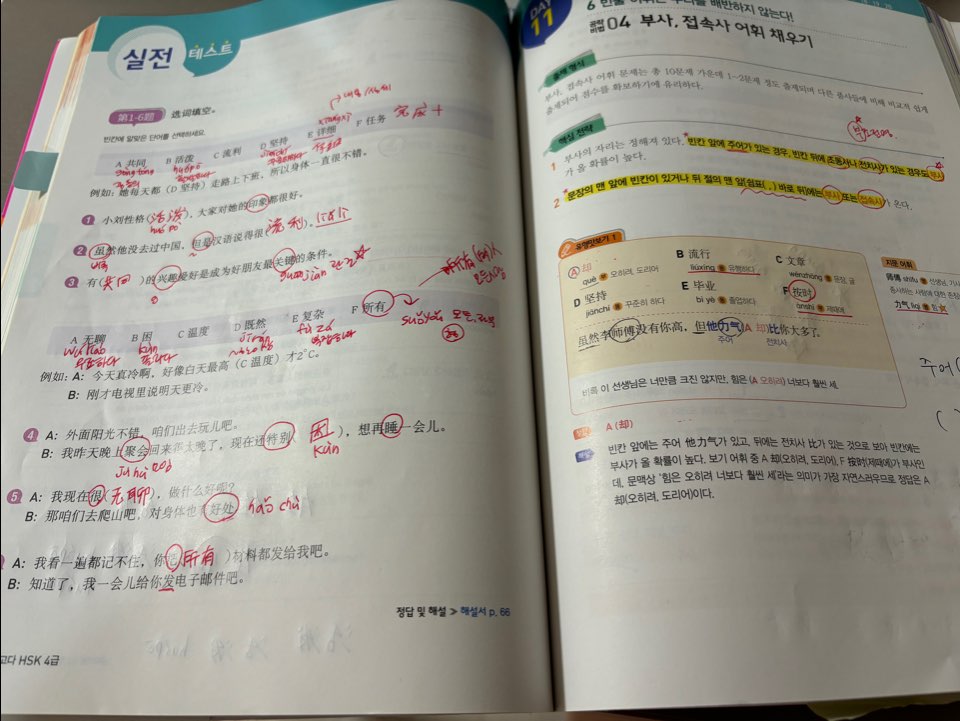 실전 테스트
第1-6题 选词填空。
빈칸에 알맞은 단어를 선택하세요.
A 共同 B 活泼 C 流利 D 坚持 E 详细 F 任务
例如：她每天都（D 坚持）走路上下班，所以身体一直很不错。
1 小刘性格（活泼），大家对她的印象都很好。
huó po
2 虽然他没去过中国，但是汉语说得很（流利）。
3 有（共同）的兴趣爱好是成为好朋友最关键的条件。
guān jiàn
A 无聊 B 困 C 温度 D 既然 E 复杂 F 所有
wú liáo kùn jì rán fù zá suǒ yǒu
例如：A：今天真冷啊，好像白天最高（C 温度）才2℃。
B：刚才电视里说明天更冷。
4 A：外面阳光不错，咱们出去玩儿吧。
B：我昨天晚上聚会回来得太晚了，现在还特别（困），想再睡一会儿。
jù huì kùn
5 A：我现在很（无聊），做什么好呢？
B：那咱们去爬山吧，对身体也有好处。
hǎo chù
A：我看一遍都记不住，你把（所有）材料都发给我吧。
B：知道了，我一会儿给你发电子邮件吧。
정답 및 해설 ≫ 해설서 p. 66
HSK 4급
DAY 11
공략비법 04 부사, 접속사 어휘 채우기
출제 형식
부사, 접속사 어휘 문제는 총 10문제 가운데 1~2문제 정도 출제되며 다른 품사들에 비해 비교적 쉽게
출제되어 점수를 확보하기에 유리하다.
핵심 전략
1 부사의 자리는 정해져 있다. 빈칸 앞에 주어가 있는 경우, 빈칸 뒤에 조동사나 전치사가 있는 경우도 부사
가 올 확률이 높다.
2 문장의 맨 앞에 빈칸이 있거나 뒤 절의 맨 앞(쉼표(，) 바로 뒤)에는 부사 또는 접속사가 온다.
유형맛보기 1
A 却 B 流行 C 文章
què 오히려, 도리어 liúxíng 유행하다 wénzhāng 문장, 글
D 坚持 E 毕业 F 按时
jiānchí 꾸준히 하다 bì yè 졸업하다 ànshí 제때에
虽然李师傅没有你高，但他力气（A 却）比你大多了。
주어 전치사
비록 이 선생님은 너만큼 크진 않지만, 힘은 (A 오히려) 너보다 훨씬 세.
지문 어휘
师傅 shīfu 선생님,
力气 lìqi 힘
A (却)
빈칸 앞에는 주어 他力气가 있고, 뒤에는 전치사 比가 있는 것으로 보아 빈칸에는
부사가 올 확률이 높다. 보기 어휘 중 A 却(오히려, 도리어), F 按时(제때에)가 부사인
데, 문맥상 '힘은 오히려 너보다 훨씬 세'라는 의미가 가장 자연스러우므로 정답은 A
却(오히려, 도리어)이다.